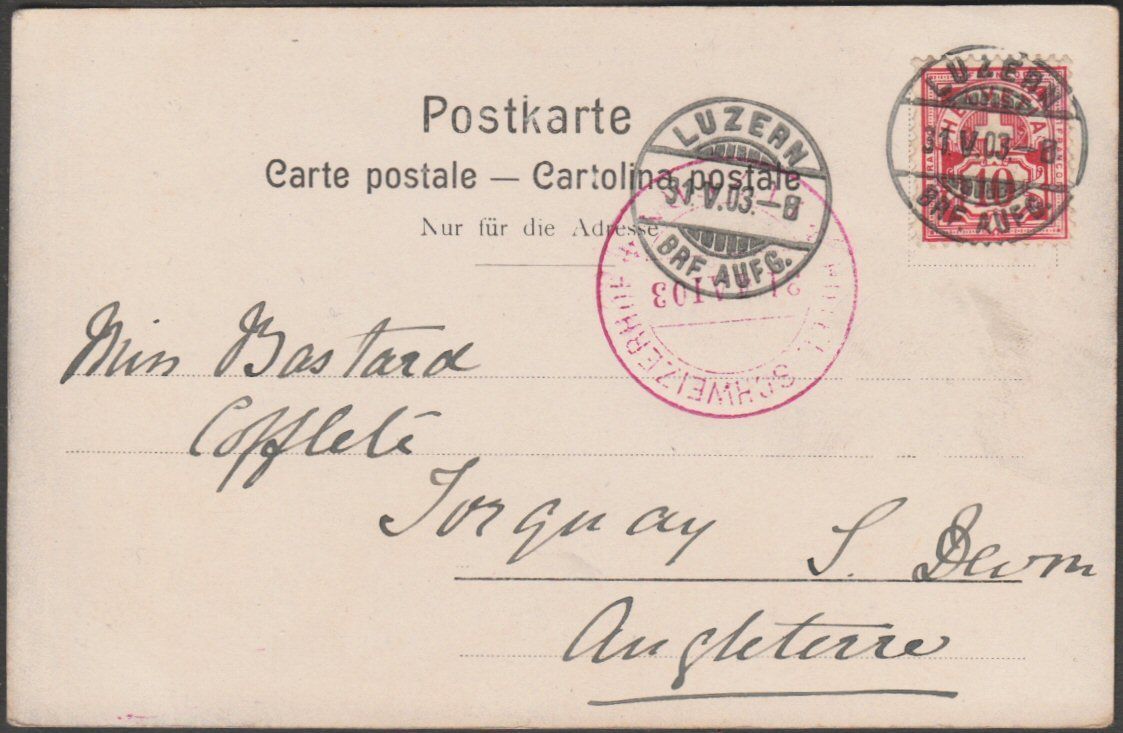 Postkarte
Carte postale — Cartolina postale
Nur für die Adresse
LUZERN
31.V.03.–8
BRF. AUFG.
LUZERN
31.V.03.–8
BRF. AUFG.
HELVETIA
FRANCO
10
SCHWEIZERHOF
03
Miss Bastard
Torquay S. Devon
Angleterre